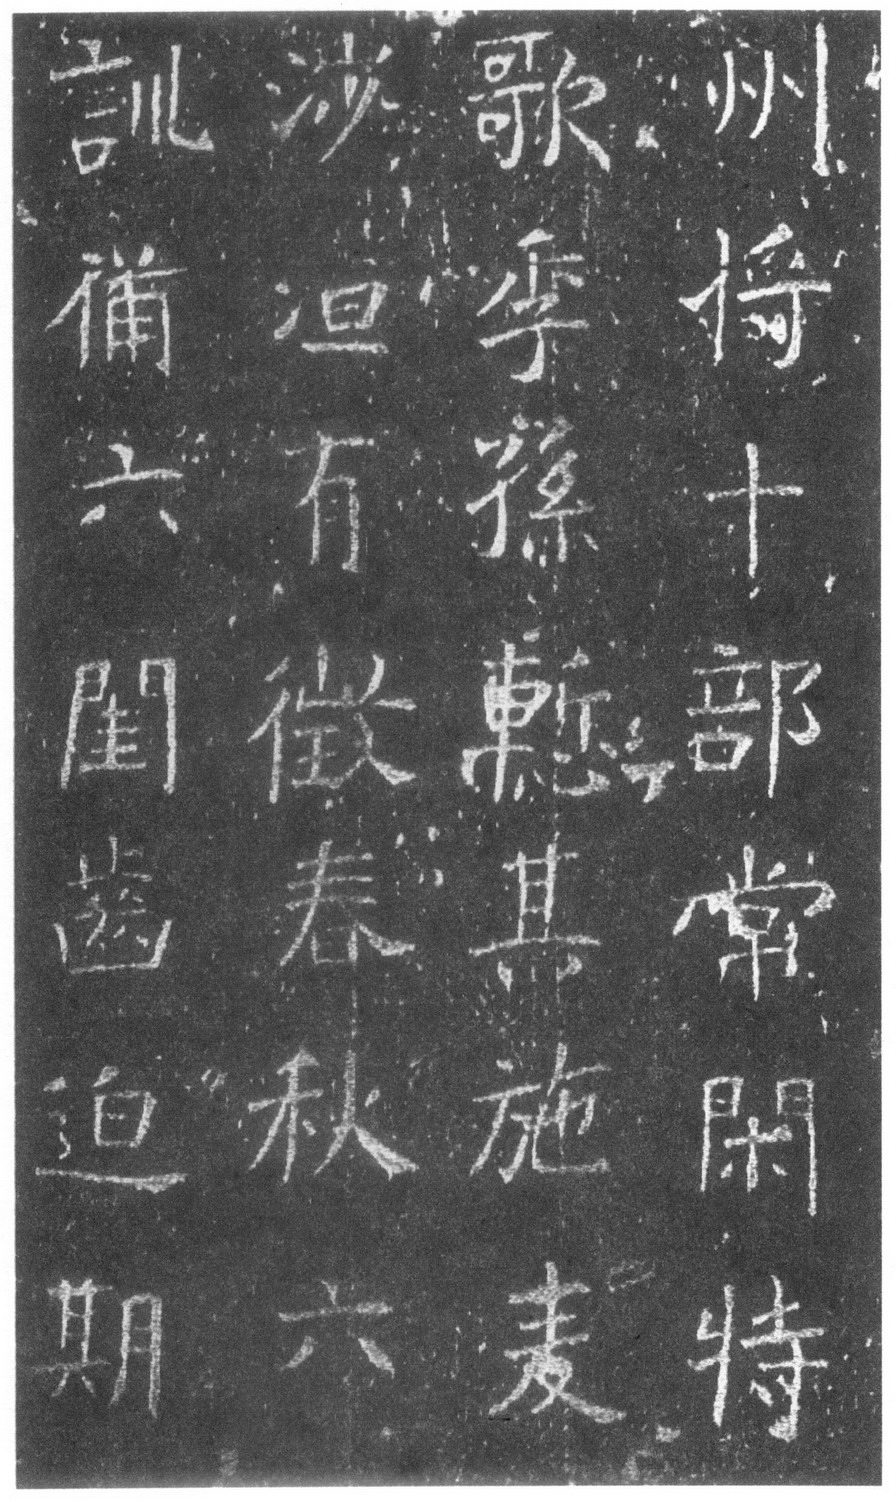 州將十部常閑特
歌季孫慙其施麦
涉洹有徵春秋六
訓備六閨齒迫期